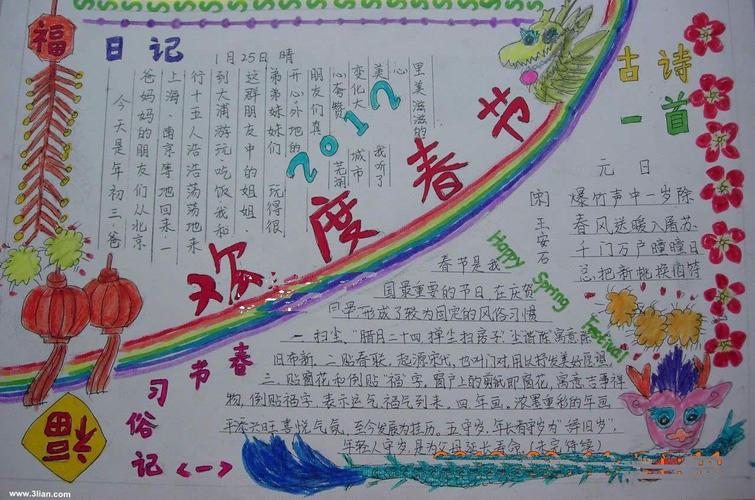 福
日记
1月25日 晴
今天是年初三,爸
爸妈妈的朋友们从北京
上海、南京等地回来,一
行十五人浩浩荡荡地来
到大浦游玩、吃饭,我和
这群朋友中的姐姐、
弟弟妹妹们玩得很
开心,外地的
朋友们真
心夸赞芜湖
变化大城市
美我听了
心
里美滋滋的
2012
欢度春节
古诗
一首
元日
[宋]王安石
爆竹声中一岁除
春风送暖入屠苏
千门万户曈曈日
总把新桃换旧符
Happy Spring Festival
春节
习俗
记<一>
春节是我
国最重要的节日,在庆贺
日早,形成了较为固定的风俗习惯
一.扫尘,"腊月二十四,掸尘扫房子"
旧布新.二贴春联,起源宋代,也叫门对用以抒发美好愿望
三.贴窗花和倒贴"福"字,窗户上的剪纸即窗花,寓意吉事祥
物,倒贴福字,表示运气,福气到来.四.年画,浓墨重彩的年画
兴旺喜悦气氛,至今发展为挂历.五.守岁,年长者守岁为"辞旧岁",
年轻人守岁,是为父母延长寿命.(未完待续)
福
www.3lian.com